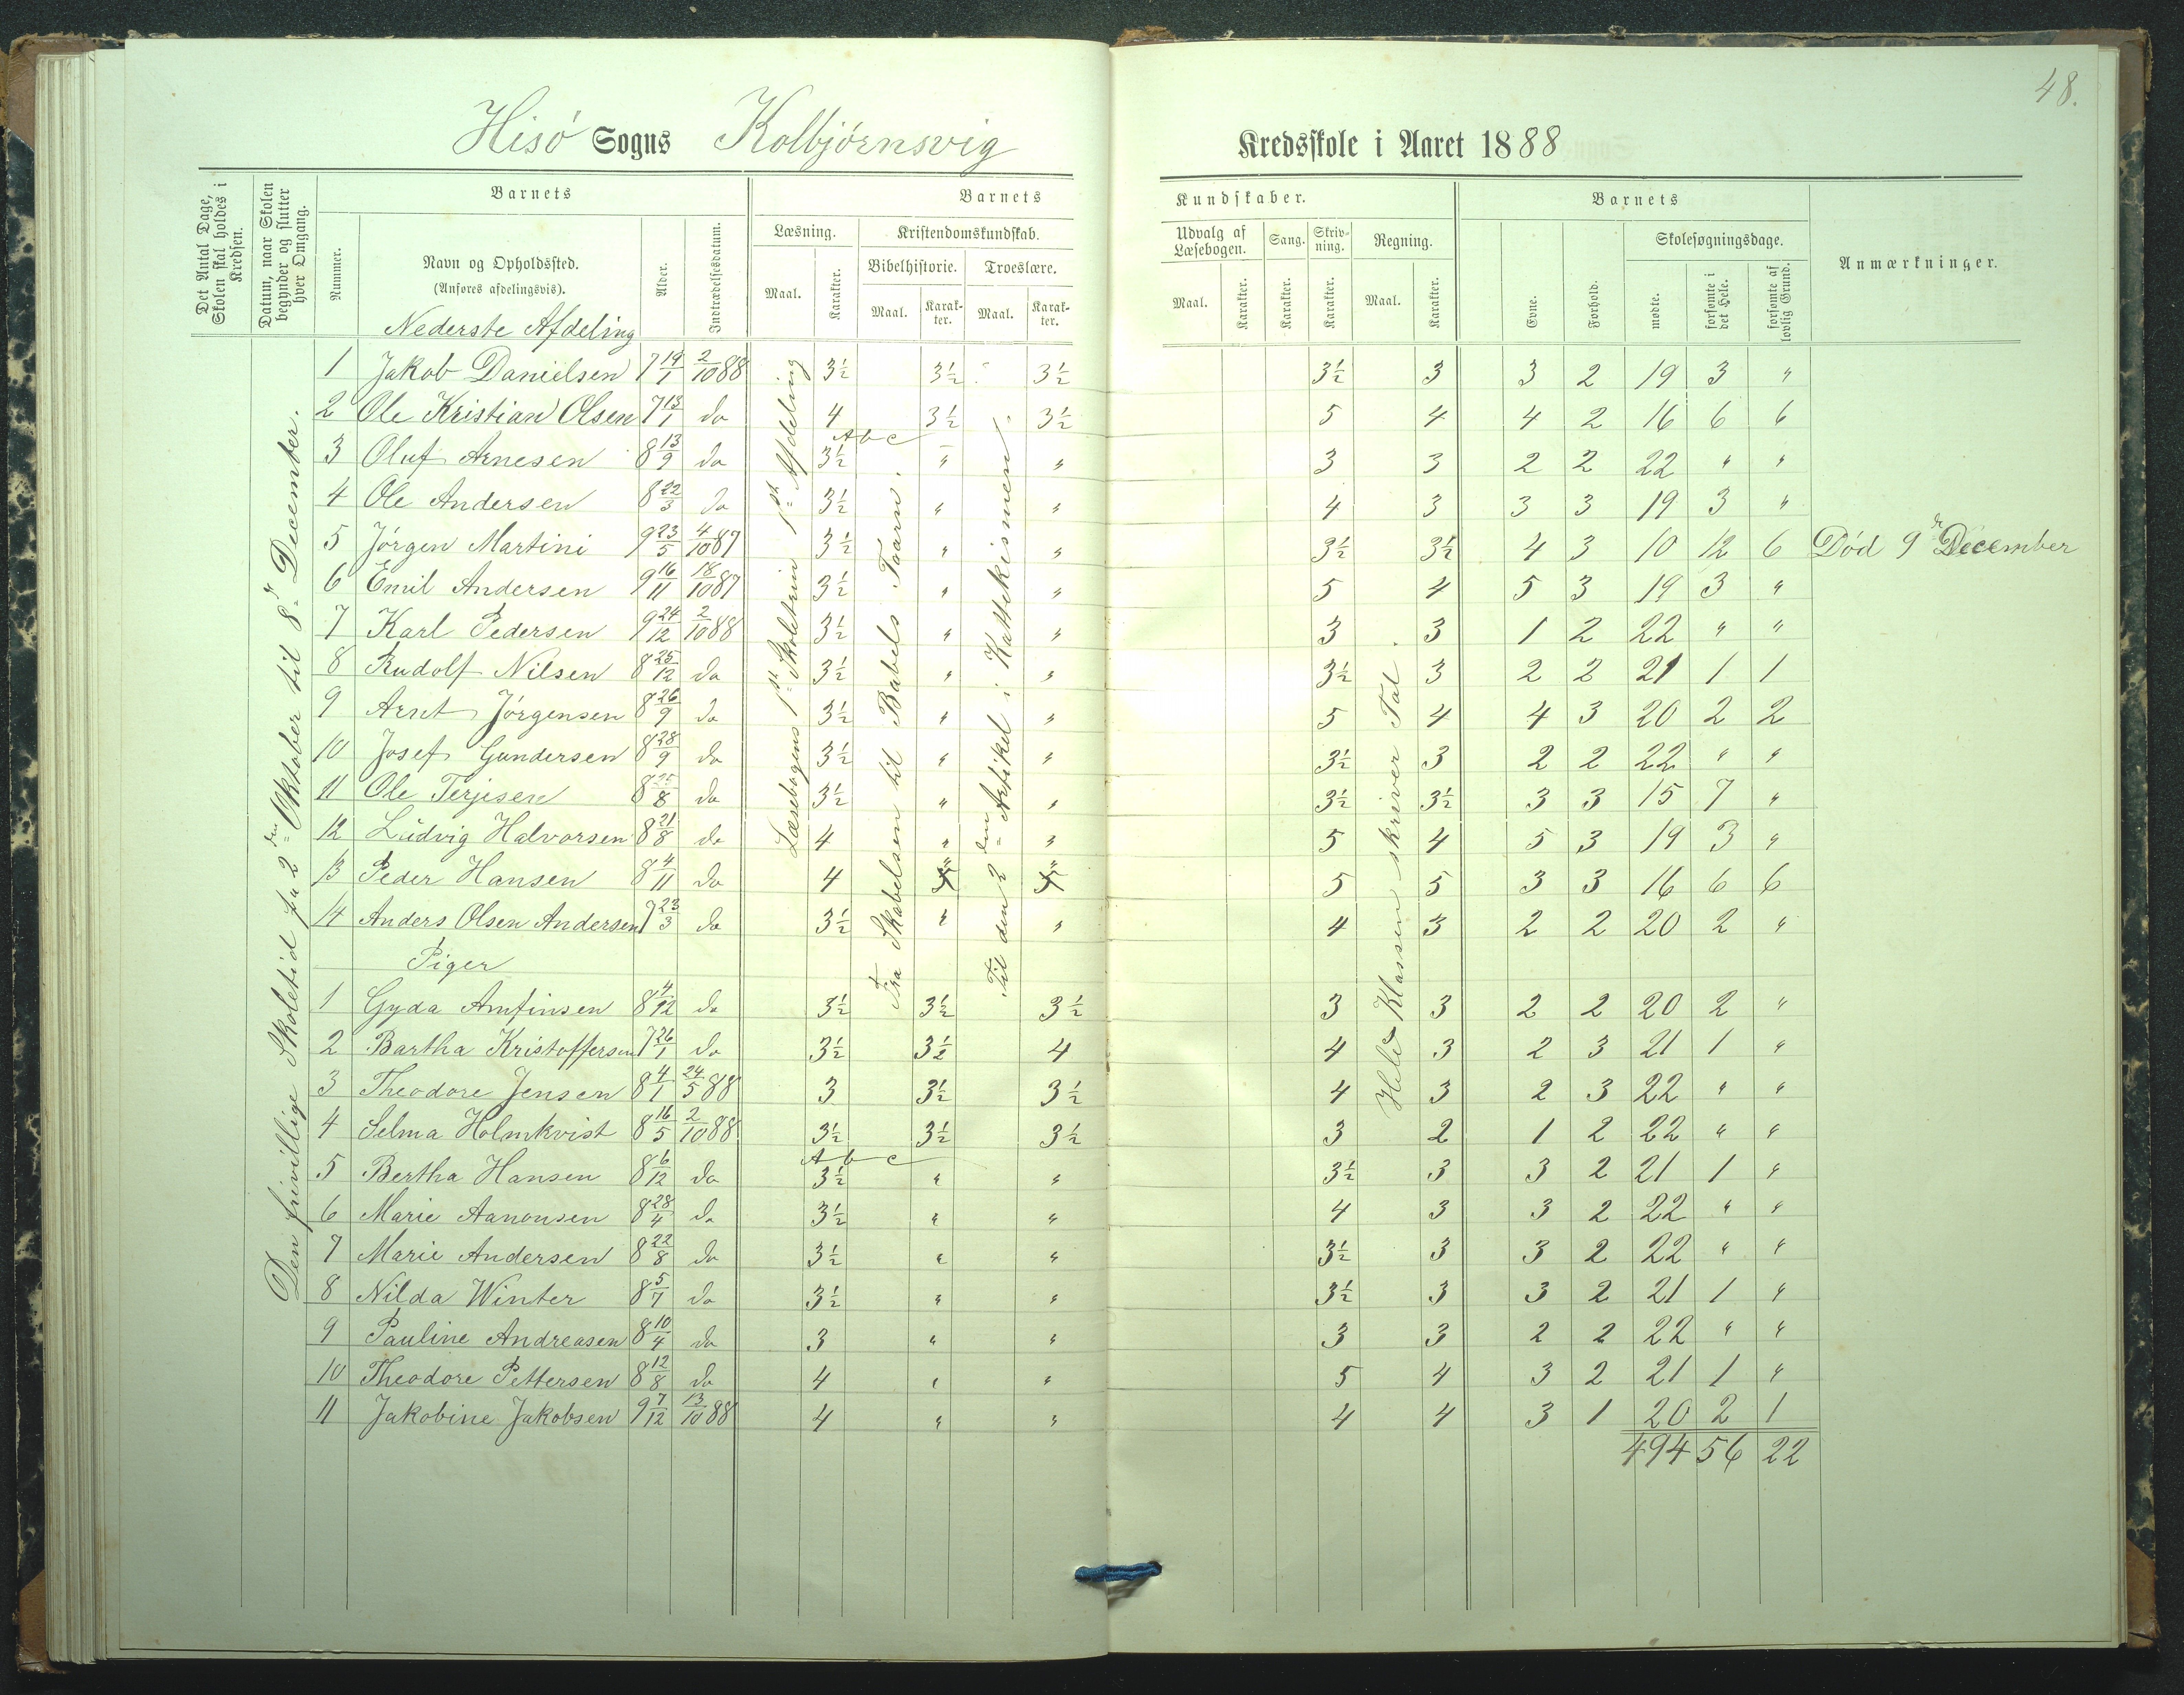 48.
Hisö Sogns Kolbjörnsvig Kredsskole i Aaret 1888
Det Antal Dage, Skolen skal holdes i Kredsen.
Datum, naar Skolen begynder og slutter hver Omgang.
Barnets
Nummer.
Navn og Opholdssted.
(Anføres afdelingsvis).
Alder.
Indtrædelsesdatum.
Barnets Kundskaber.
Læsning.
Maal.
Karakter.
Kristendomskundskab.
Bibelhistorie.
Maal.
Karakter.
Troeslære.
Maal.
Karakter.
Udvalg af Læsebogen.
Maal.
Karakter.
Sang.
Karakter.
Skrivning.
Karakter.
Regning.
Maal.
Karakter.
Barnets
Evne.
Forhold.
Skolesøgningsdage.
mødte.
forsømte i det Hele.
forsømte af lovlig Grund.
Anmærkninger.
Nederste Afdeling
Den frivillige Skoletid fra 2den Oktober til 8de December.
Læsebogens 1ste Skoletrin 1ste Afdeling
Fra Skabelsen til Babels Taarn.
Til den 2den Artikel i Kattekismen.
Hele Klassen skriver Tal.
1 Jakob Danielsen 7 19/1 2/10 88 3½ 3½ 3½ 3½ 3 3 2 19 3 "
2 Ole Kristian Olsen 7 13/1 do 4 3½ 3½ 5 4 4 2 16 6 6
Abc
3 Oluf Arnesen 8 13/9 do 3½ " " 3 3 2 2 22 " "
4 Ole Andersen 8 22/3 do 3½ " " 4 3 3 3 19 3 "
5 Jörgen Martini 9 23/5 4/10 87 3½ " " 3½ 3½ 4 3 10 12 6 Död 9de December
6 Emil Andersen 9 16/11 18/10 87 3½ " " 5 4 5 3 19 3 "
7 Karl Pedersen 9 24/12 2/10 88 3½ " " 3 3 1 2 22 " "
8 Rudolf Nilsen 8 25/12 do 3½ " " 3½ 3 2 2 21 1 1
9 Arnt Jörgensen 8 26/9 do 3½ " " 5 4 4 3 20 2 2
10 Josef Gundersen 8 28/9 do 3½ " " 3½ 3 2 2 22 " "
11 Ole Terjesen 8 do 3½ " " 3½ 3½ 3 3 15 7 "
12 Ludvig Halvorsen 8 21/8 do 4 " " 5 4 5 3 19 3 "
13 Peder Hansen 8 4/11 do 4 " " 5 5 3 3 16 6 6
14 Anders Olsen Andersen 7 23/3 do 3½ " " 4 3 2 2 20 2 "
Piger
1 Gyda Amfinsen 8 4/12 do 3½ 3½ 3½ 3 3 2 2 20 2 "
2 Bartha Kristoffersen 7 26/1 do 3½ 3½ 4 4 3 2 3 21 1 "
3 Theodore Jensen 8 4/1 24/5 88 3 3½ 3½ 4 3 2 3 22 " "
4 Selma Holmkvist 8 16/5 2/10 88 3½ 3½ 3½ 3 2 1 2 22 " "
Abc
5 Bertha Hansen 8 6/12 do 3½ " " 3½ 3 3 2 21 1 "
6 Marie Aanonsen 8 28/4 do 3½ " " 4 3 3 2 22 " "
7 Marie Andersen 8 22/8 do 3½ " " 3½ 3 3 2 22 " "
8 Nilda Winter 8 5/7 do 3½ " " 3½ 3 3 2 21 1 "
9 Pauline Andreasen 8 10/4 do 3 " " 3 3 2 2 22 " "
10 Theodore Pettersen 8 12/8 do 4 " " 5 4 3 2 21 1 "
11 Jakobine Jakobsen 9 7/12 13/10 88 4 " " 4 4 3 1 20 2 1
494 56 22